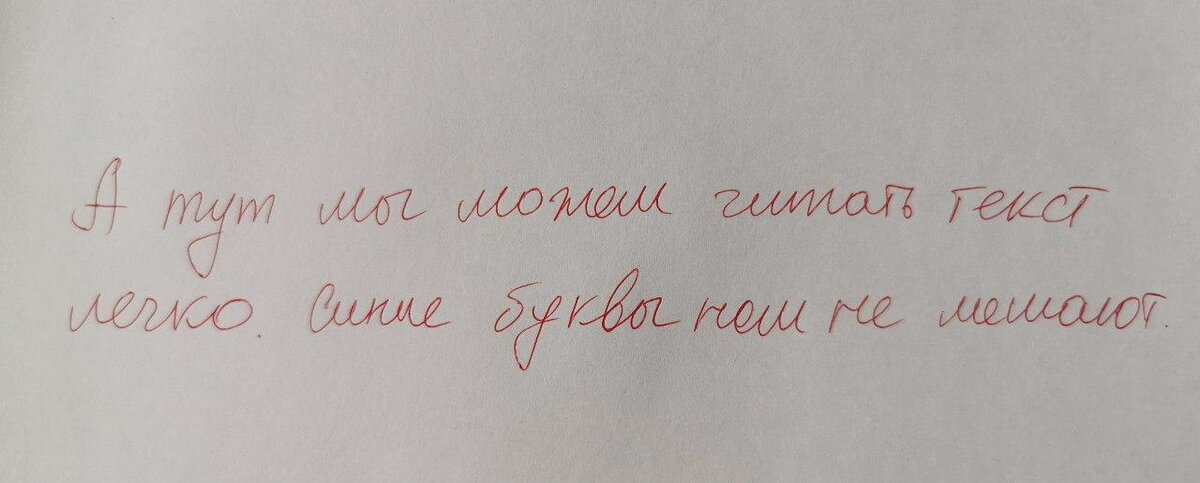 А тут мы можем читать текст
легко. Синие буквы нам не мешают.